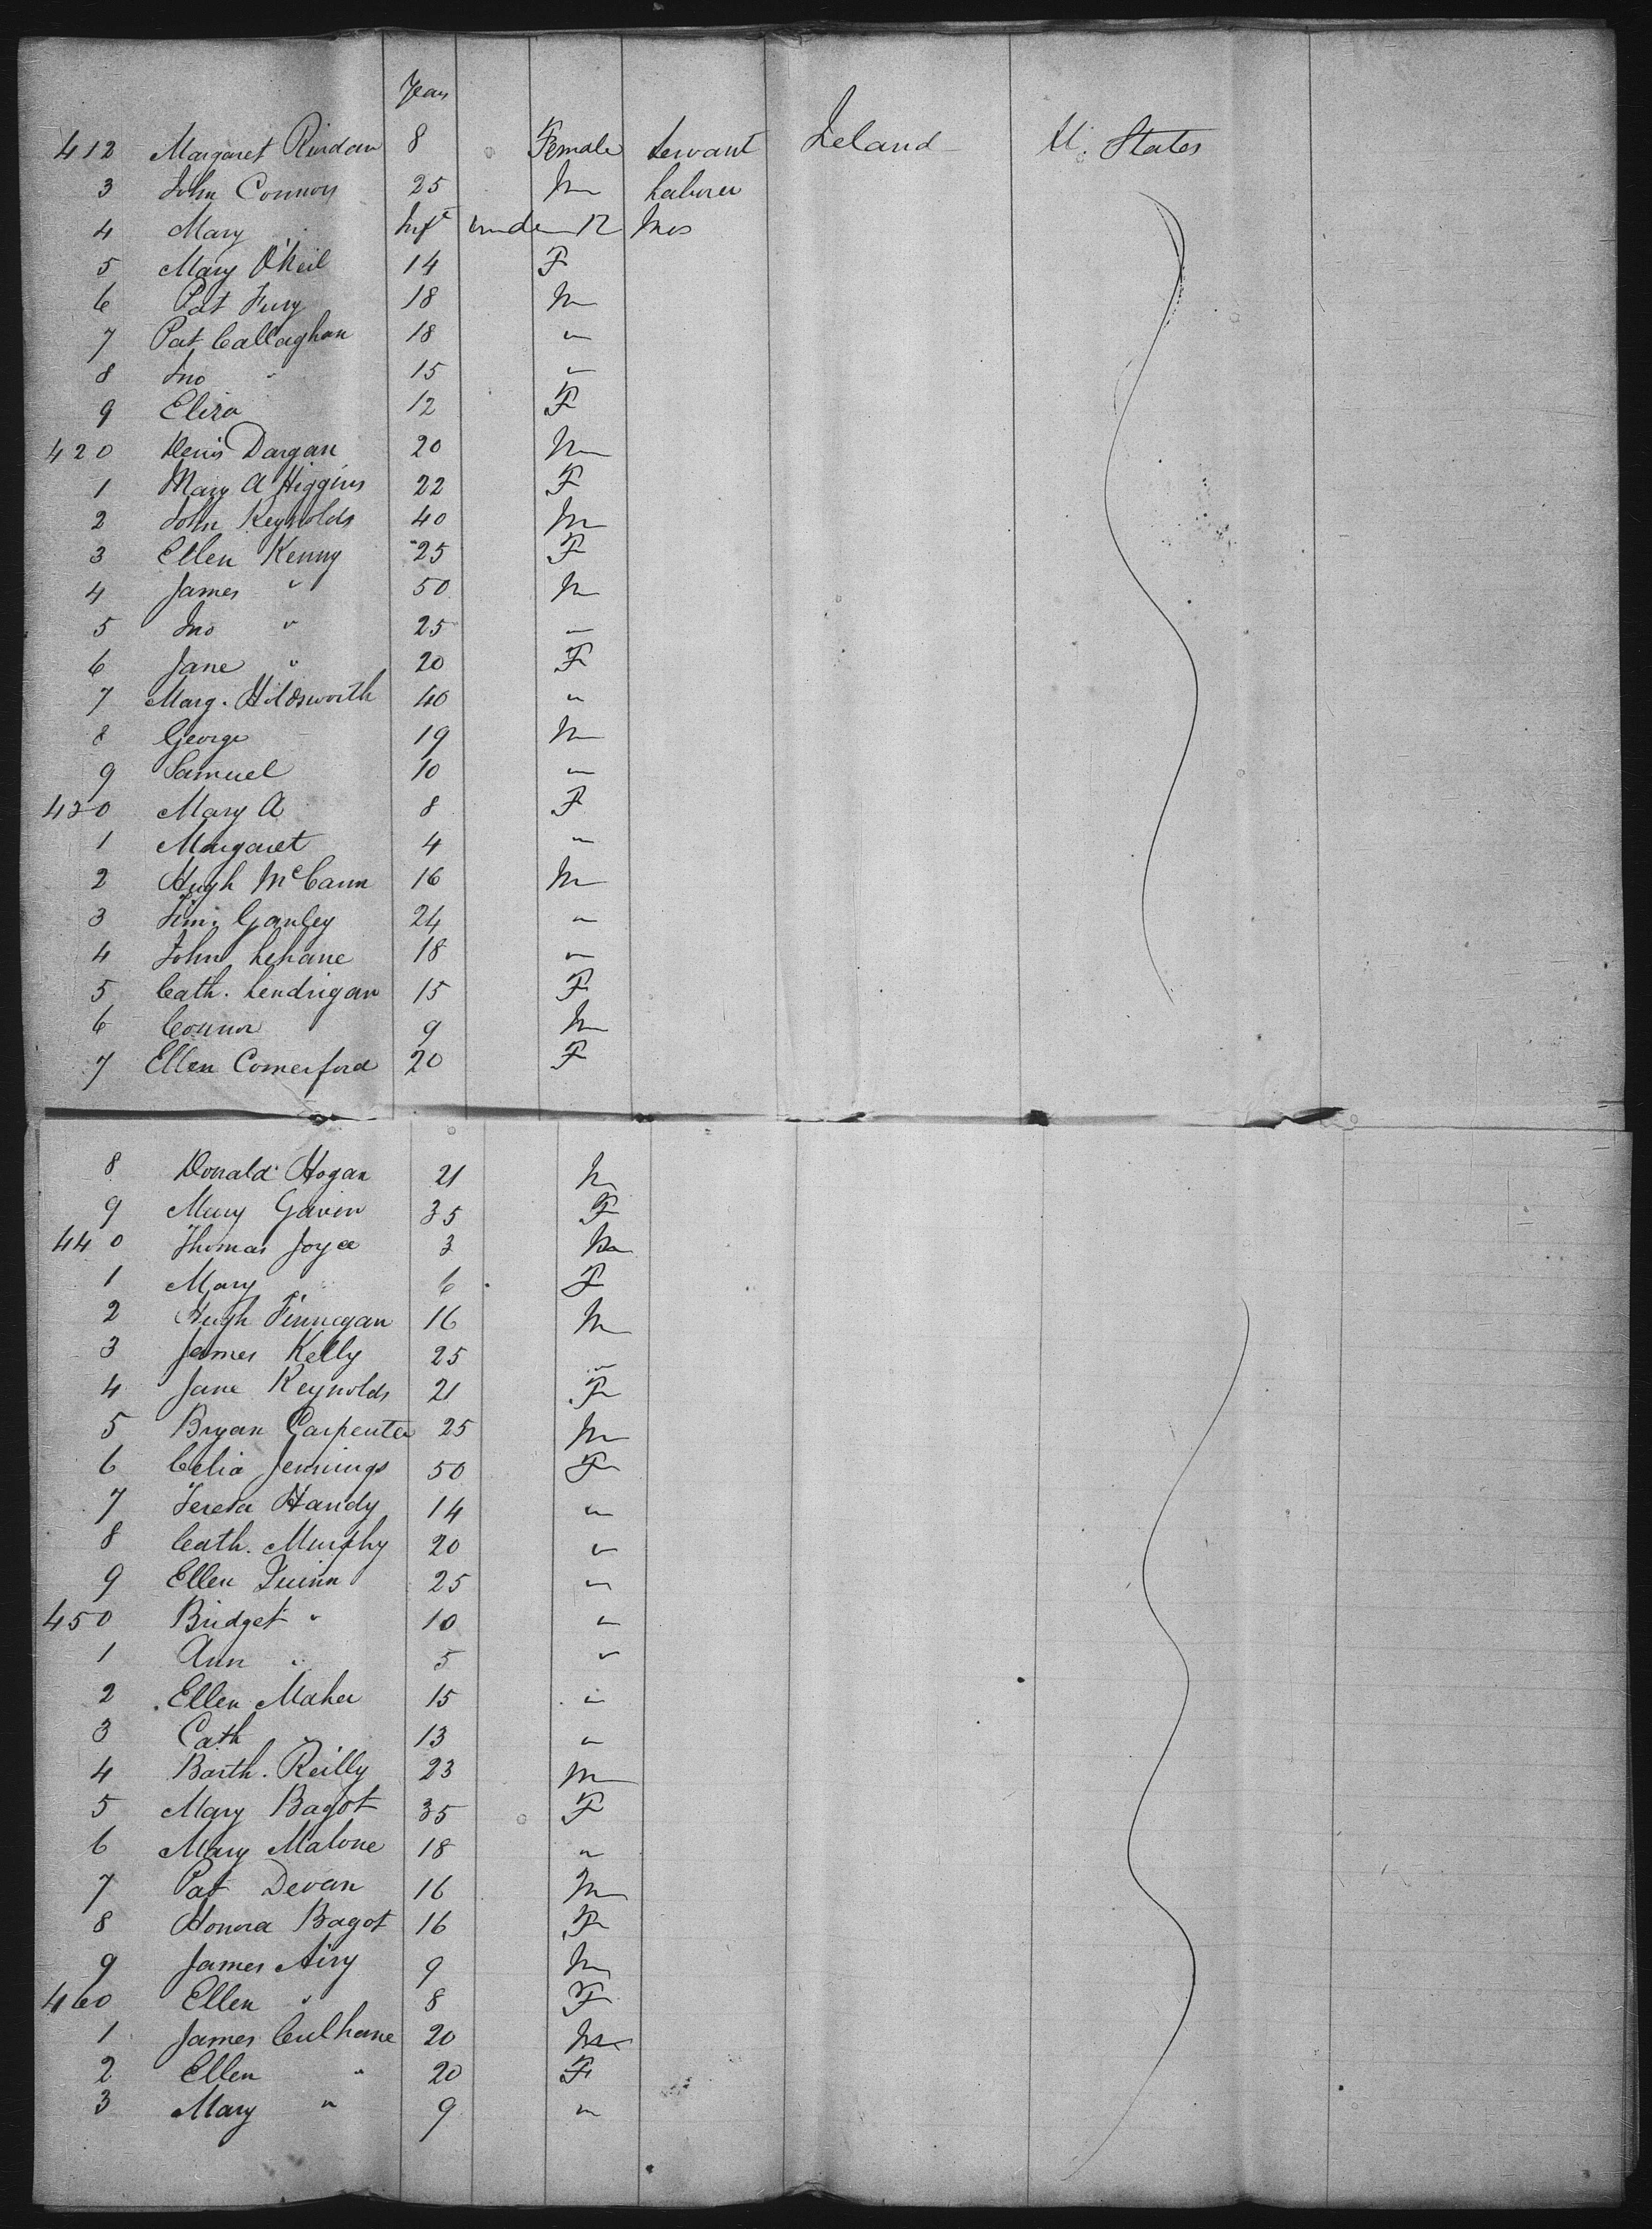 Years
412 Margaret Riordan 8 Female Servant Ireland U. States
3 John Connors 25 M Laborer
4 Mary " Inft under 12 Mos
5 Mary O'Neil 14 F
6 Pat Fury 18 M
7 Pat Callaghan 18 "
8 Jno " 15 "
9 Eliza 12 F
420 Denis Dargan 20 M
1 Mary A Higgins 22 F
2 John Reynolds 40 M
3 Ellen Kenny 25 F
4 James " 50 M
5 Jno " 25 "
6 Jane " 20 F
7 Marg. Holdsworth 40 "
8 George 19 M
9 Samuel 10 "
430 Mary A 8 F
1 Margaret 4 "
2 Hugh McCann 16 M
3 Jim. Ganley 24 "
4 John Lehane 18 "
5 Cath. Lendrigan 15 F
6 Connor 9 M
7 Ellen Comerford 20 F
8 Donald Hogan 21 M
9 Mary Gavin 35 F
440 Thomas Joyce 3 M
1 Mary " 6 F
2 Hugh Finnegan 16 M
3 James Kelly 25 "
4 Jane Reynolds 21 F
5 Bryan Carpenter 25 M
6 Celia Jennings 50 F
7 Teresa Handy 14 "
8 Cath. Murphy 20 "
9 Ellen Quinn 25 "
450 Bridget " 10 "
1 Ann " 5 "
2 Ellen Maher 15 "
3 Cath " 13 "
4 Barth. Reilly 23 M
5 Mary Bagot 35 F
6 Mary Malone 18 "
7 Pat Devan 16 M
8 Honora Bagot 16 F
9 James Airy 9 M
460 Ellen " 8 F
1 James Culhane 20 M
2 Ellen " 20 F
3 Mary " 9 "